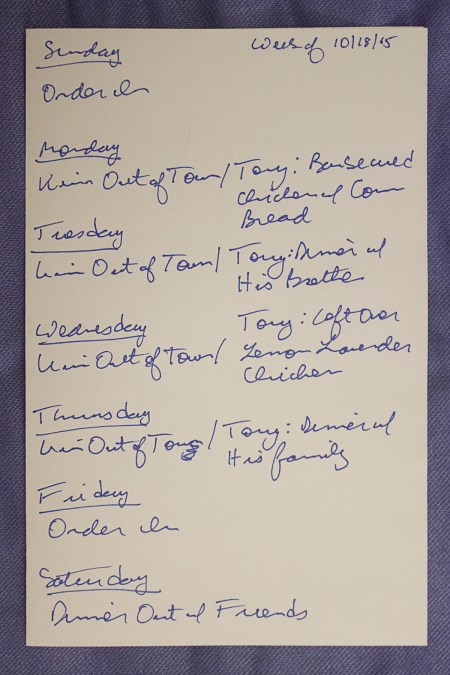 Sunday
Week of 10/18/15
Order in
Monday
Kim Out of Town / Tony: Barbecued
Chicken w/ Corn
Bread
Tuesday
Kim Out of Town / Tony: Dinner w/
His Brother
Wednesday
Tony: Left Over
Kim Out of Town / Lemon Lavender
Chicken
Thursday
Kim Out of Town / Tony: Dinner w/
His family
Friday
Order in
Saturday
Dinner Out w/ Friends